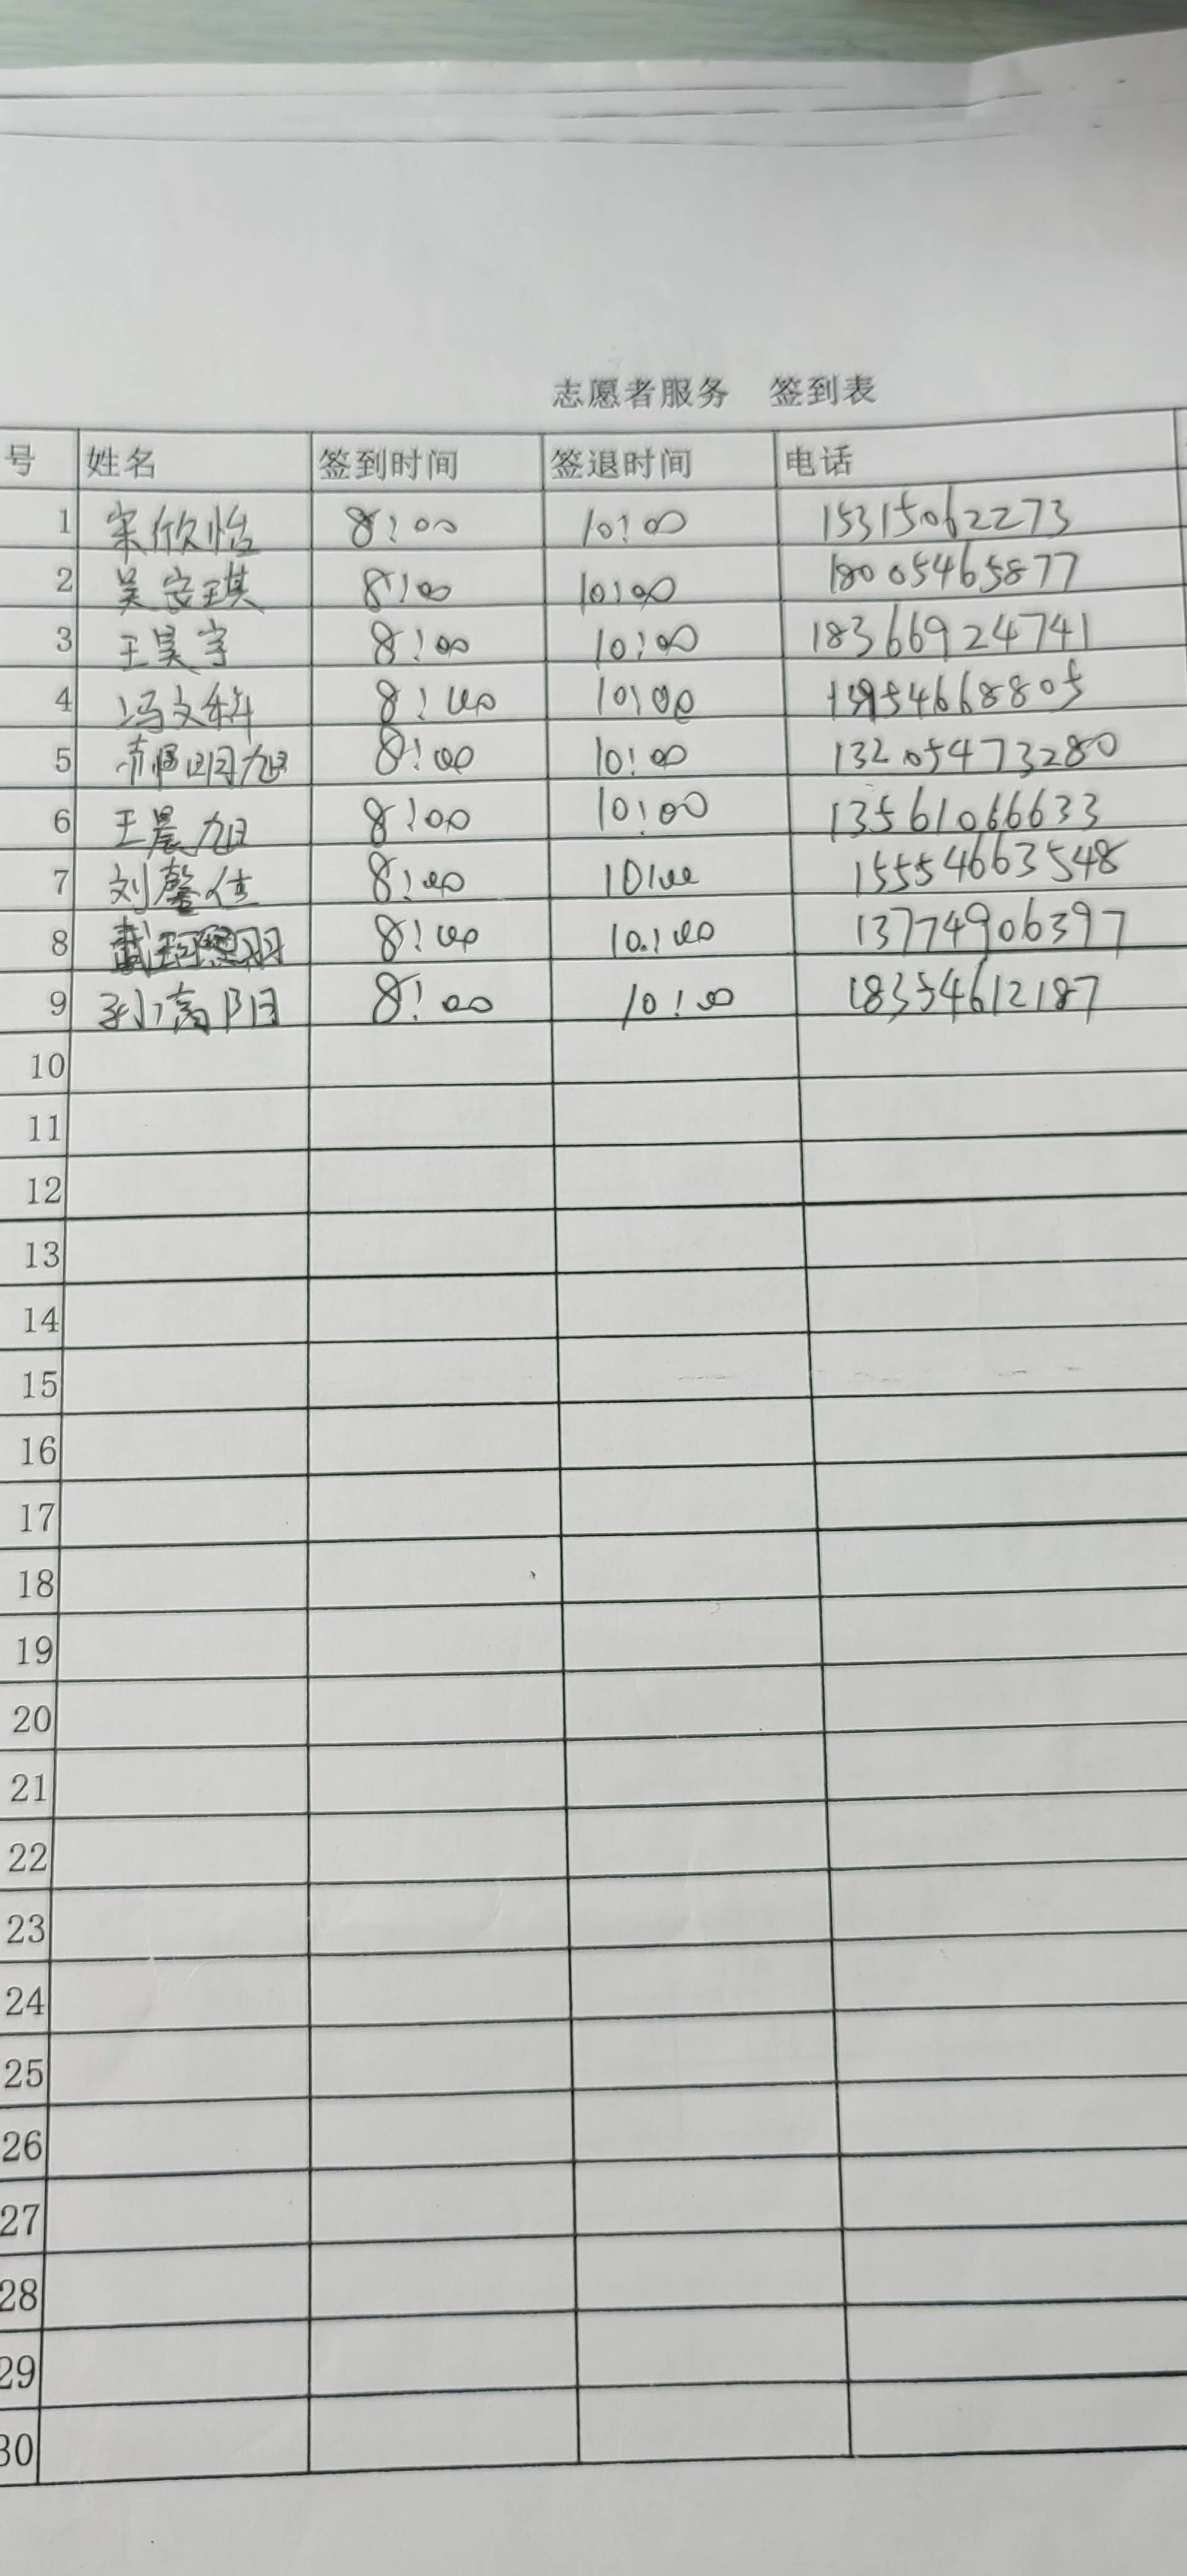 志愿者服务 签到表
号 姓名 签到时间 签退时间 电话
1 宋欣怡 8:00 10:00 15315062273
2 吴安琪 8:00 10:00 18005465877
3 王昊宇 8:00 10:00 18366924741
4 冯文科 8:00 10:00 54668805
5 8:00 10:00 13205473280
6 王晨旭 8:00 10:00 13561066633
7 刘馨佳 8:00 10:00 15554663548
8 武珂羽 8:00 10:00 13774906397
9 孙滴阳 8:00 10:00 18354612187
10
11
12
13
14
15
16
17
18
19
20
21
22
23
24
25
26
27
28
29
30